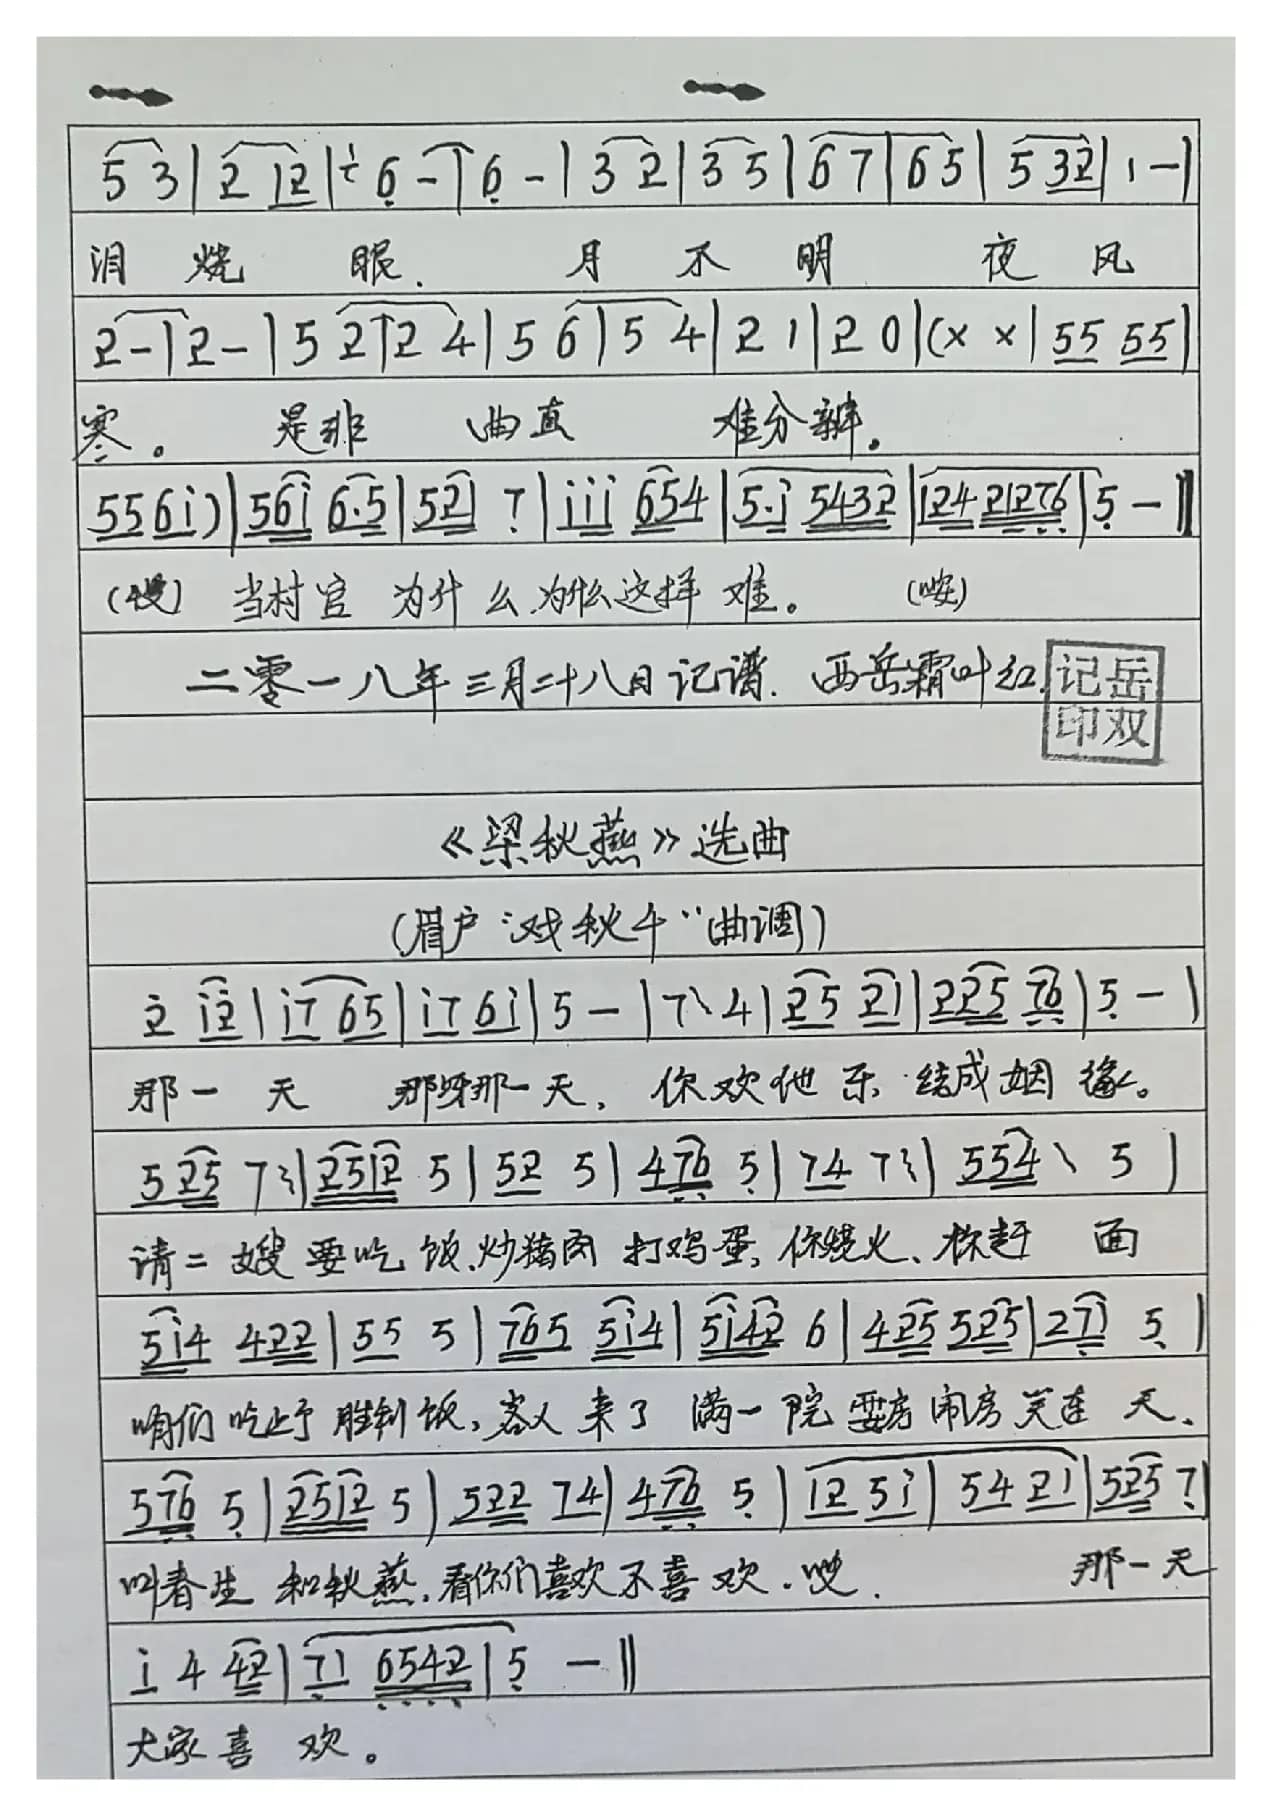 5 3 | 2 12 | 6 - | 6 - | 3 2 | 3 5 | 6 7 | 6 5 | 5 32 | 1 - |
泪 烧 眼. 月 不 明 夜 风
2 - | 2 - | 5 2 | 2 4 | 5 6 | 5 4 | 2 1 | 2 0 | (× × | 55 55 |
寒。 是非 曲直 难分辨。
55 6i) | 56i 6·5 | 521 7 | iii 654 | 5·i 5432 | 124 21276 | 5 - ‖
当村官 为什么.为什么这样 难。 (哎)
二零一八年三月二十八日记谱. 西岳霜叶红.
记岳
印双
《梁秋燕》选曲
(眉户“戏秋千”曲调)
2 i2 | i7 65 | i7 6i | 5 - | 7、4 | 25 21 | 225 76 | 5 - |
那一 天 那呀那一天, 你欢他乐.结成姻缘。
525 7 | 2512 5 | 52 5 | 476 5 | 74 7 | 554、5 |
请二嫂要吃饭.炒猪肉打鸡蛋,你烧火、你赶 面
5i4 422 | 55 5 | 765 5i4 | 5i42 6 | 425 525 | 271 5 |
咱们吃 饭,客人来了满一院耍房闹房笑连天、
576 5 | 2512 5 | 522 74 | 476 5 | 12 5i | 54 21 | 525 7 |
叫春生 和秋燕,看你们喜欢不喜欢. 那一天
i 4 42 | 71 6542 | 5 - ‖
大家喜 欢。